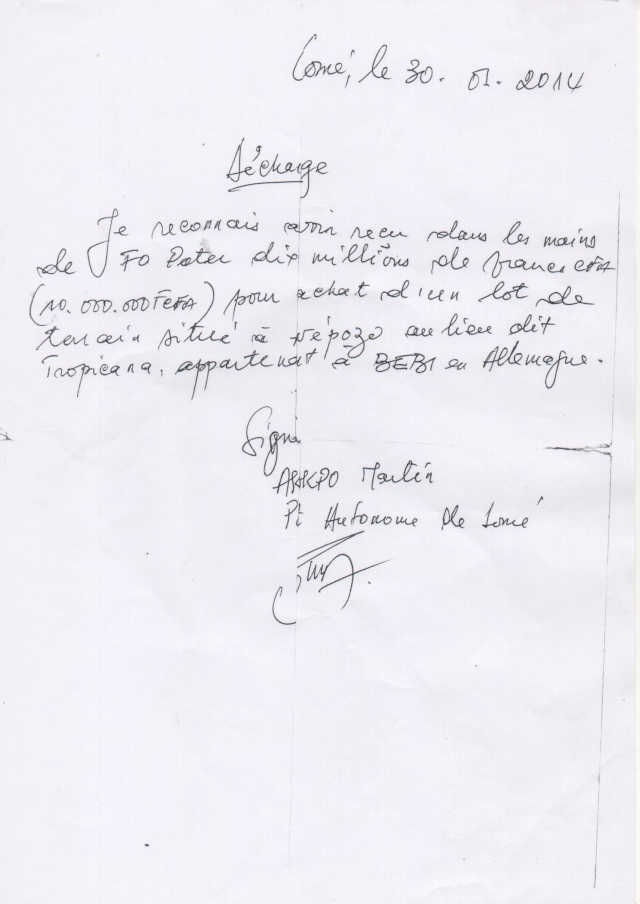 Lomé, le 30. 01. 2014
Décharge
Je reconnais avoir recu dans les mains
de FO Pater dix millions de francs CFA
(10.000.000 FCFA) pour achat d'un lot de
terrain situé à Népozo au lieu dit
Tropicana, appartenat à BEBI en Allemagne.
Signé
AKAKPO Martin
Pt Autonome de Lomé